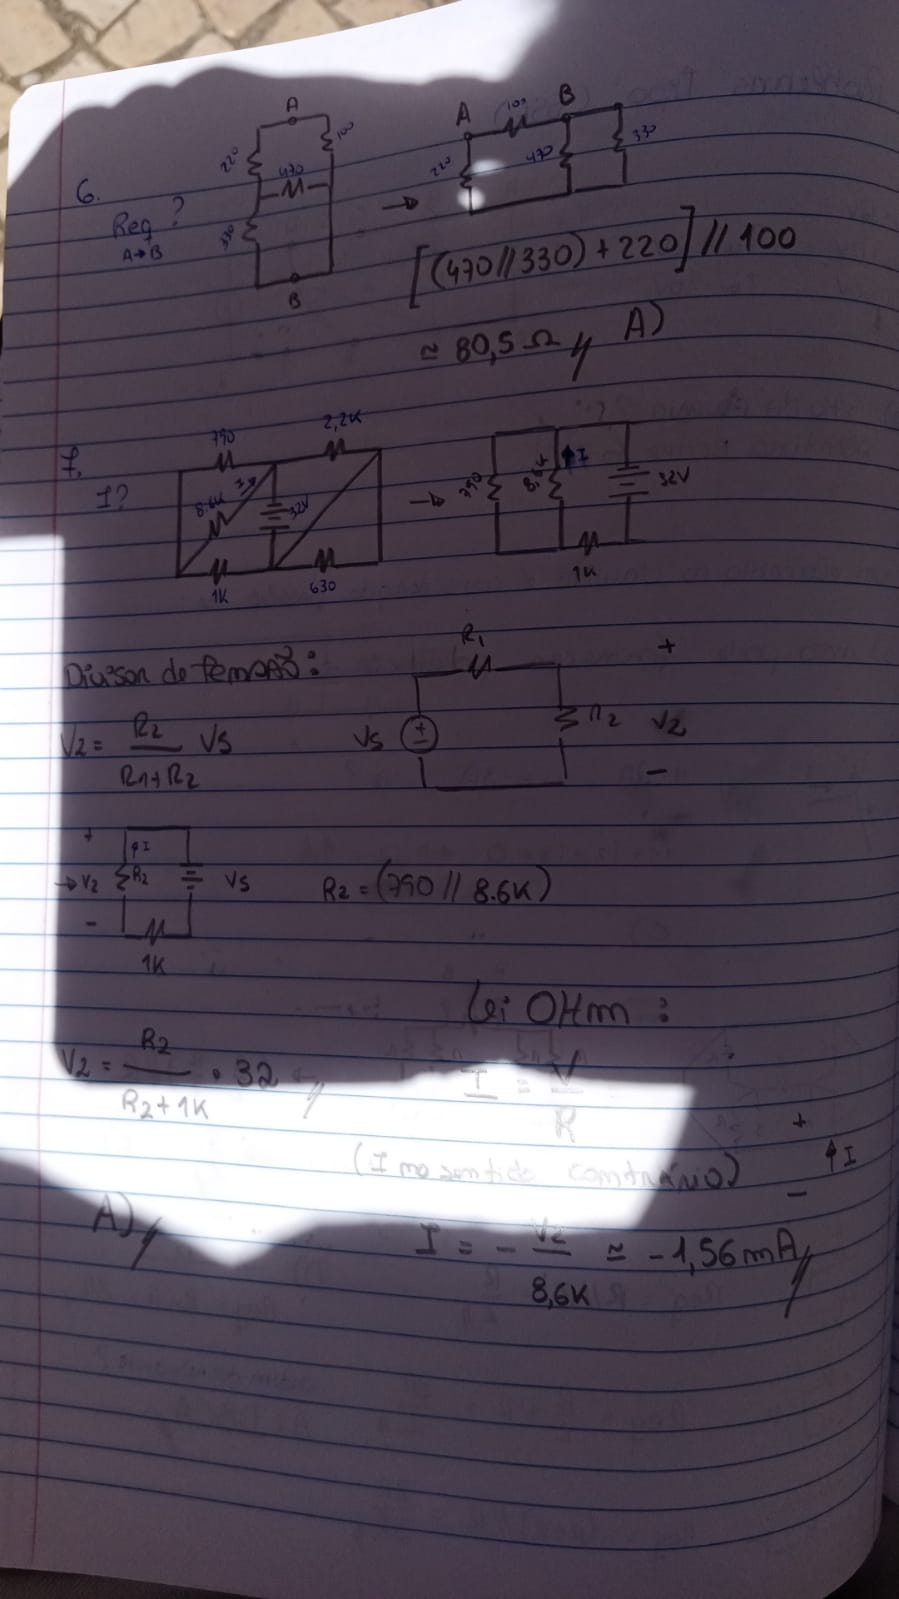 6.
Req ?
A→B
A
220
100
470
330
B
→
A
100
B
220
470
330
[(470//330) + 220] // 100
≈ 80,5 Ω // A)
7.
I?
790
2,2K
8.6K
I
32V
1K
630
→
790
8,6K
I
32V
1K
Divisor de Tensão:
V2 = R2 / (R1+R2) VS
R1
VS
R2
+
V2
-
+
→ V2
-
I
R2
VS
1K
R2 = (790 // 8.6K)
V2 = R2 / (R2 + 1K) • 32 //
Lei OHm :
I = V / R
(I no sentido contrário)
+
I
-
A) //
I = - V2 / 8,6K ≈ -1,56mA //